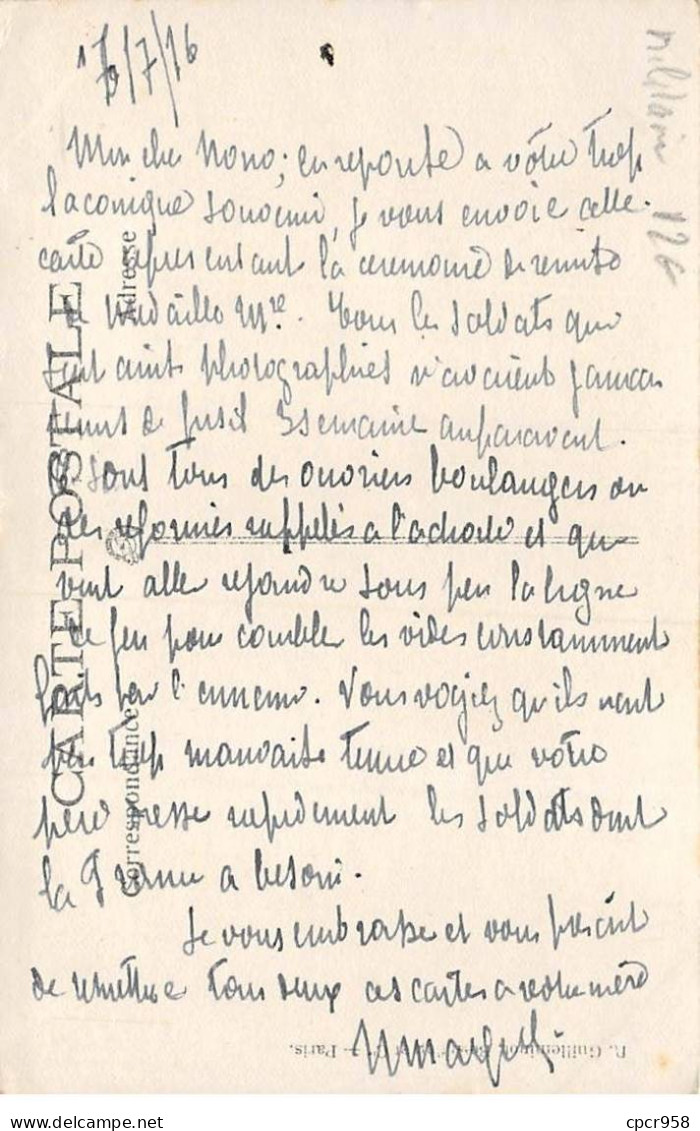 16/7/16
militaria 126
Mon cher Nono; en reponse a votre trop
laconique souvenir, je vous envoie cette
carte representant la ceremonie de remise
de Medaille Mre. Tous les soldats qui
sont ainsi photographiés n'avaient jamais
de fusil 3 semaines auparavant.
Ce sont tous des ouvriers boulangers ou
des reformés rappelés a l'activité et qui
vont aller rejoindre sous peu la ligne
de feu pour combler les vides constamment
faits par l'ennemi. Vous voyez qu'ils n'ont
pas trop mauvaise tenue et que votre
père dresse rapidement les soldats dont
la France a besoin.
Je vous embrasse et vous prescrit
de remettre tous deux ces cartes a votre mère
CARTE POSTALE
Correspondance
Adresse
R. Guilleminot, Paris.